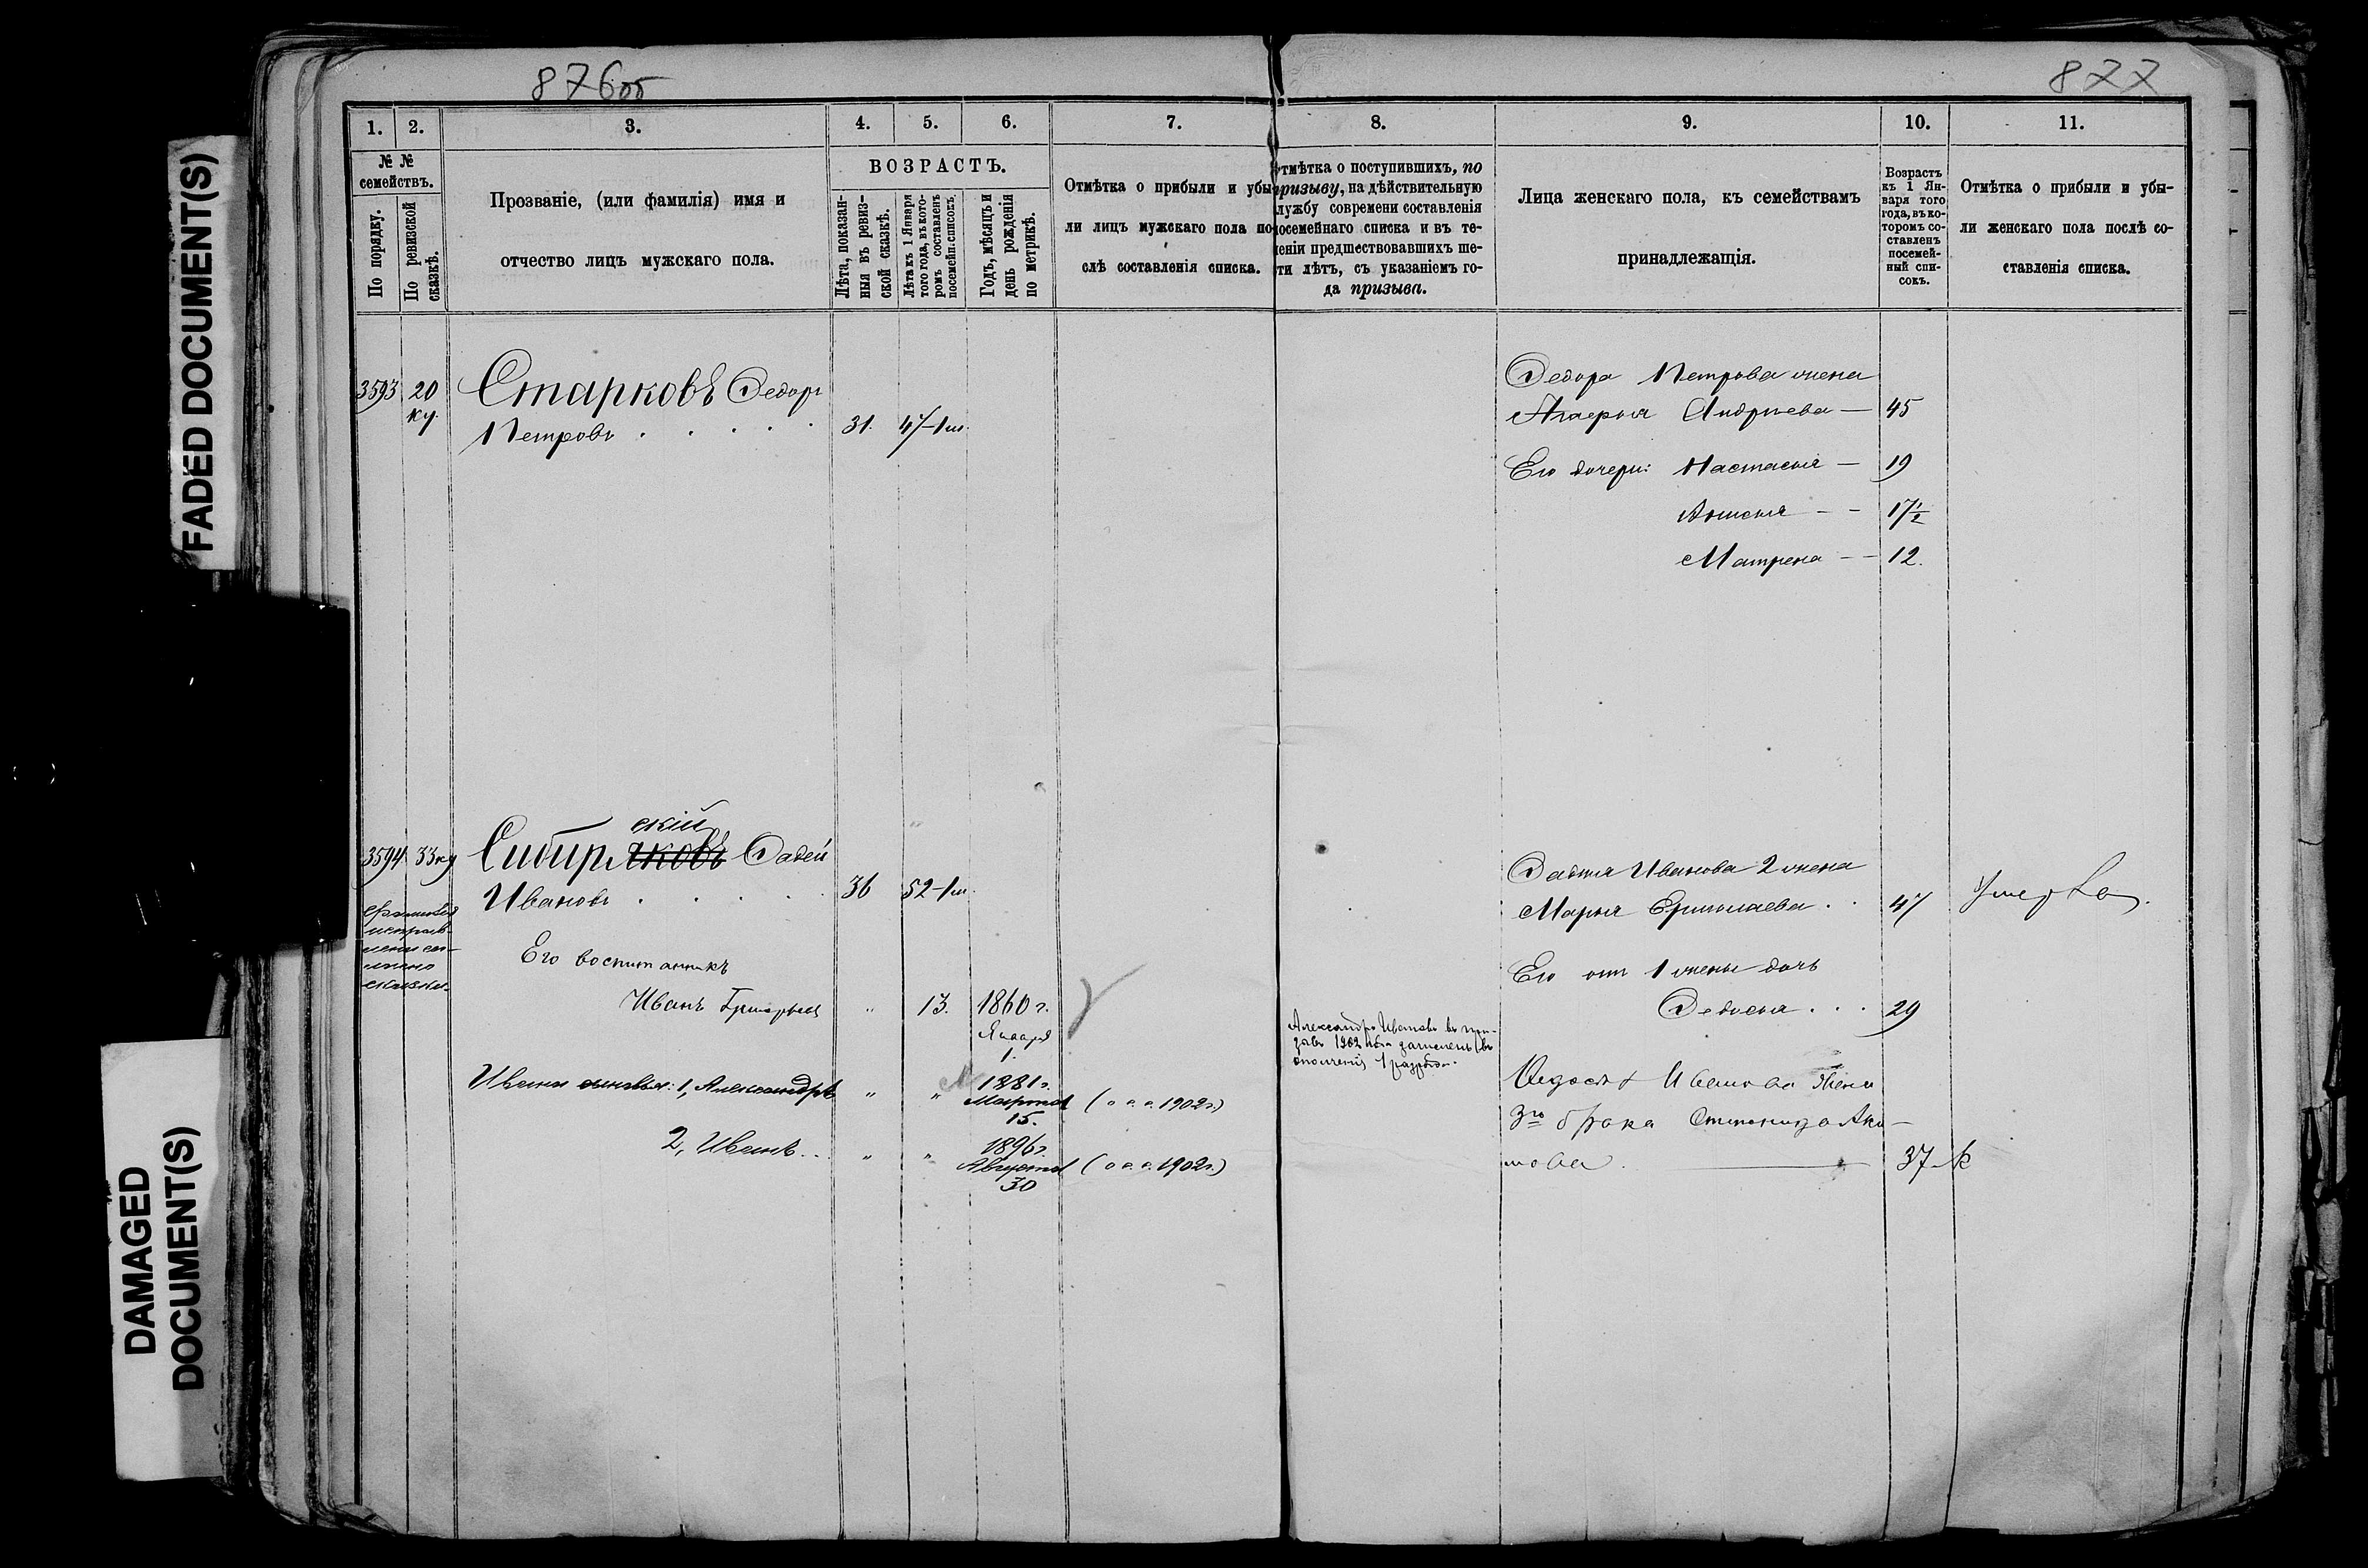 FADED DOCUMENT(S)
DAMAGED
DOCUMENT(S)
876об
877
1.
2.
3.
4.
5.
6.
7.
8.
9.
10.
11.
№ №
семействъ.
По порядку.
По ревизской
сказкѣ.
Прозваніе, (или фамилія) имя и
отчество лицъ мужскаго пола.
ВОЗРАСТЪ.
Лѣта, показан-
ныя въ ревиз-
ской сказкѣ.
Лѣта къ 1 Января
того года, въ кото-
ромъ составленъ
посемейн. списокъ.
Годъ, мѣсяцъ и
день рожденія
по метрикѣ.
Отмѣтка о прибыли и убы-
ли лицъ мужскаго пола по-
слѣ составленія списка.
отмѣтка о поступившихъ, по
призыву, на дѣйствительную
службу современи составленія
посемейнаго списка и въ те-
ченіи предшествовавшихъ ше-
сти лѣтъ, съ указаніемъ го-
да призыва.
Лица женскаго пола, къ семействамъ
принадлежащія.
Возрастъ
къ 1 Ян-
варя того
года, въ ко-
торомъ со-
ставленъ
посемей-
ный спи-
сокъ.
Отмѣтка о прибыли и убы-
ли женскаго пола послѣ со-
ставленія списка.
3593 20 Старковъ Федоръ
ку.
Петровъ 31. 47
Федора Петрова жена
Агафья Андреева — 45
Его дочери: Настасья — 19
17½
Матрена — — 12.
скій
3594 33 ку Сибиряковъ Фадей
Ивановъ 36 52
Фадея Иванова 2 жена
Марья Ермолаева 47 Умерла.
Его воспитанникъ
Его отъ 1 жены дочь
Иванъ Григорьевъ " 13. 1860 г.
Января
1.
Федосья . . . 29
Александръ Ивановъ въ при-
зывъ 1902 года зачисленъ въ
ополченіе 1 разряда.
Ивана сыновья: 1, Александръ " " 1881 г.
Марта
15.
(1902 г.)
2, Иванъ . . " " 1896 г.
Августа
30
(1902 г.)
Иванова жена
3го брака Степанида Аки-
мова 37